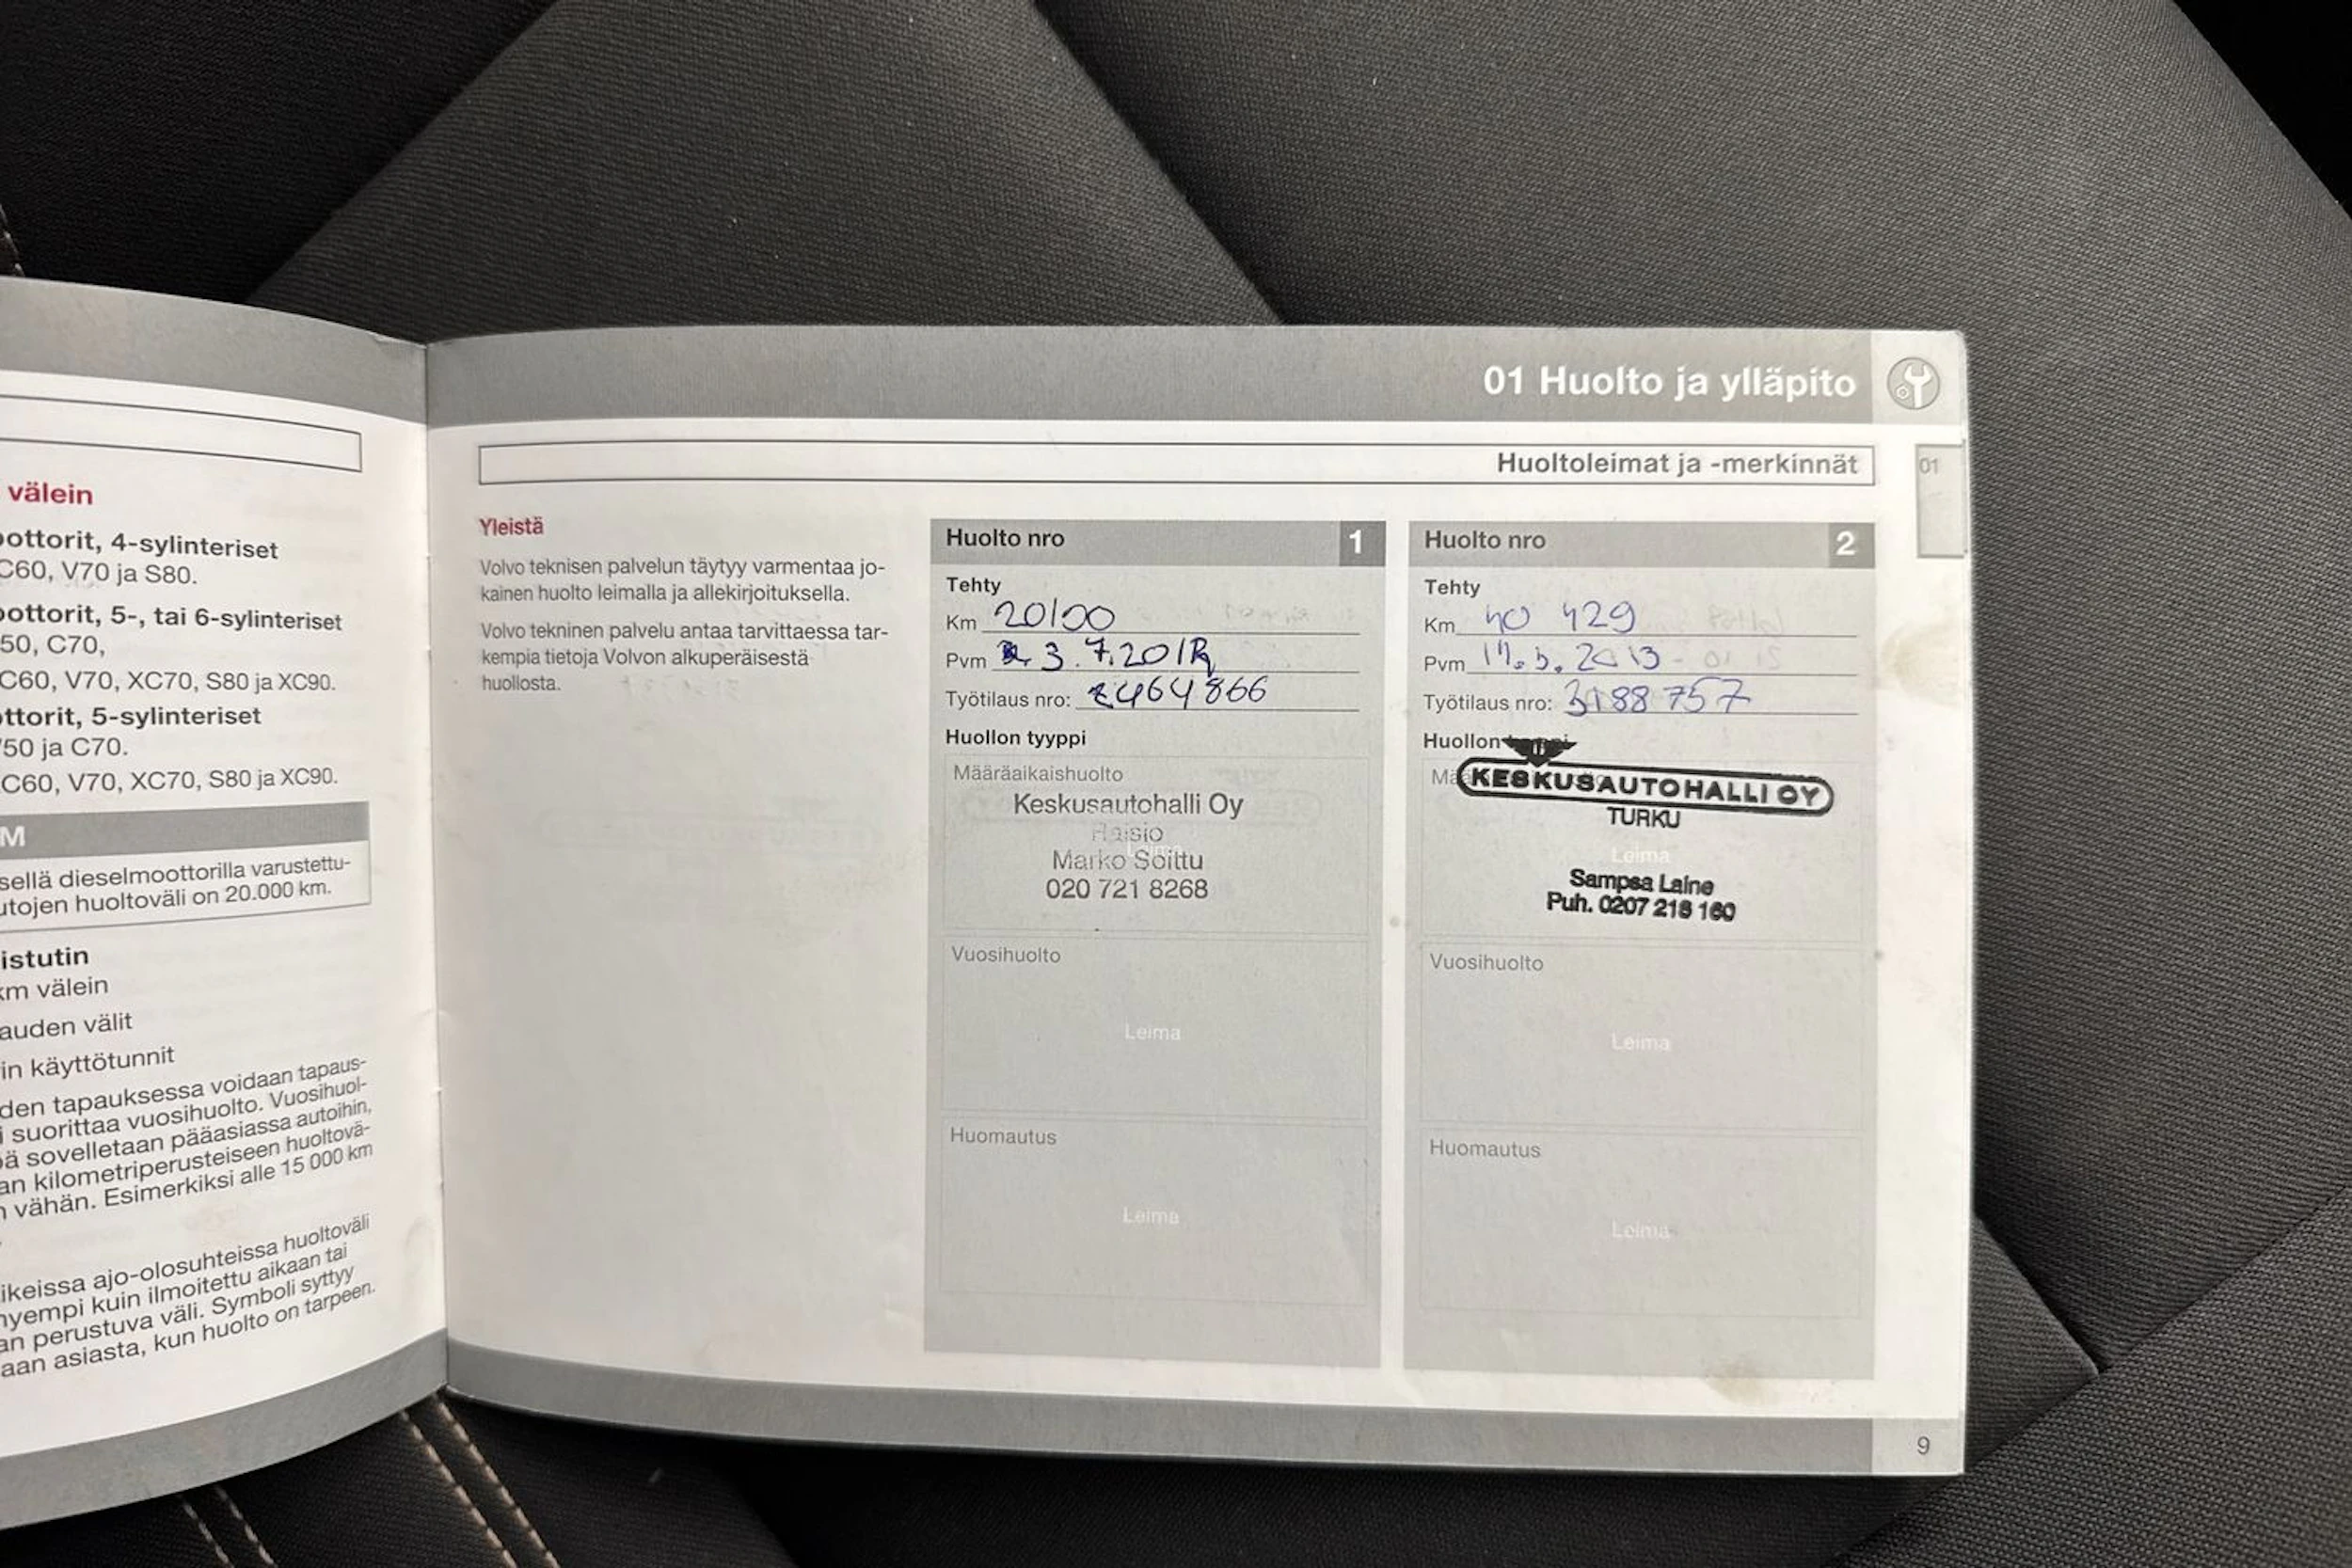 välein
ottorit, 4-sylinteriset
C60, V70 ja S80.
ottorit, 5-, tai 6-sylinteriset
50, C70,
C60, V70, XC70, S80 ja XC90.
ttorit, 5-sylinteriset
50 ja C70.
C60, V70, XC70, S80 ja XC90.
M
sellä dieselmoottorilla varustettu-
utojen huoltoväli on 20.000 km.
istutin
km välein
auden välit
in käyttötunnit
den tapauksessa voidaan tapaus-
i suorittaa vuosihuolto. Vuosihuol-
ä sovelletaan pääasiassa autoihin,
an kilometriperusteiseen huoltovä-
n vähän. Esimerkiksi alle 15 000 km
ikeissa ajo-olosuhteissa huoltoväli
hyempi kuin ilmoitettu aikaan tai
an perustuva väli. Symboli syttyy
aan asiasta, kun huolto on tarpeen.
01 Huolto ja ylläpito
Huoltoleimat ja -merkinnät
01
Yleistä
Volvo teknisen palvelun täytyy varmentaa jo-
kainen huolto leimalla ja allekirjoituksella.
Volvo tekninen palvelu antaa tarvittaessa tar-
kempia tietoja Volvon alkuperäisestä
huollosta.
Huolto nro 1
Tehty
Km 20100
Pvm 3.7.2012
Työtilaus nro: 2464866
Huollon tyyppi
Määräaikaishuolto
Keskusautohalli Oy
Raisio
Leima
Marko Soittu
020 721 8268
Vuosihuolto
Leima
Huomautus
Leima
Huolto nro 2
Tehty
Km 40 429
Pvm 2013
Työtilaus nro: 3188757
Huollon
KESKUSAUTOHALLI OY
TURKU
Leima
Sampsa Laine
Puh. 0207 218 160
Vuosihuolto
Leima
Huomautus
Leima
9